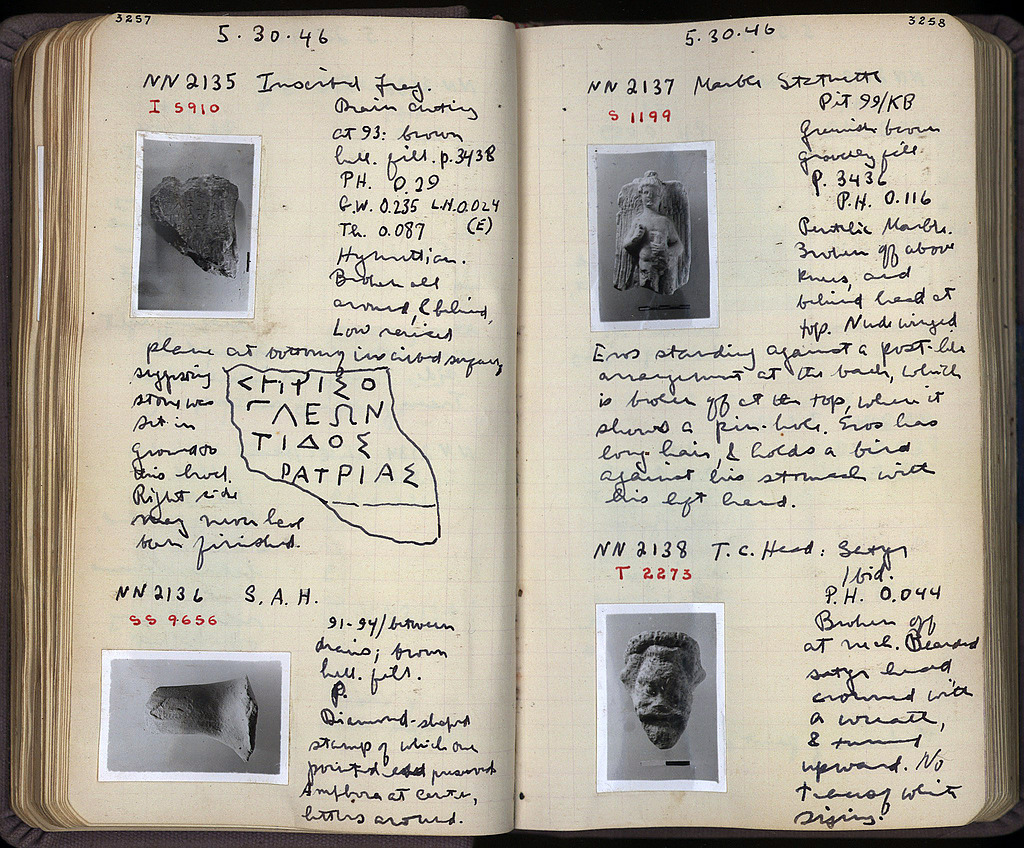 3257
5·30·46
NN 2135 Inscribed Frag.
I 5910
Drain cutting
at 93: brown
hell. fill. p. 3438
PH. 0.29
G.W. 0.235 L.H. 0.024
Th. 0.087 (E)
Hymettian.
Broken all
around, & behind,
Low raised
plane at bottom inscribed surface
suggesting
stone was
set in
ground to
this level.
Right side
may never have
been finished.
ΚΗΦΙΣΟ
ΓΛΕΩΝ
ΤΙΔΟΣ
ΡΑΤΡΙΑΣ
NN 2136 S.A.H.
SS 9656
91-94/between
drains; brown
hell. fill.
p.
Diamond-shaped
stamp of which one
pointed end preserved
Amphora at center,
letters around.
3258
5·30·46
NN 2137 Marble Statuette
S 1199
Pit 99/KB
Greenish brown
gravelly fill
p. 3436
P.H. 0.116
Pentelic Marble.
Broken off above
knees, and
behind head at
top. Nude winged
Eros standing against a post-like
arrangement at the back, which
is broken off at the top, where it
shows a pin-hole. Eros has
long hair, & holds a bird
against his stomach with
his left hand.
NN 2138 T.C. Head: Satyr
T 2273
Ibid.
P.H. 0.044
Broken off
at neck. Bearded
satyr head
crowned with
a wreath,
& turned
upward. No
traces of white
sizing.